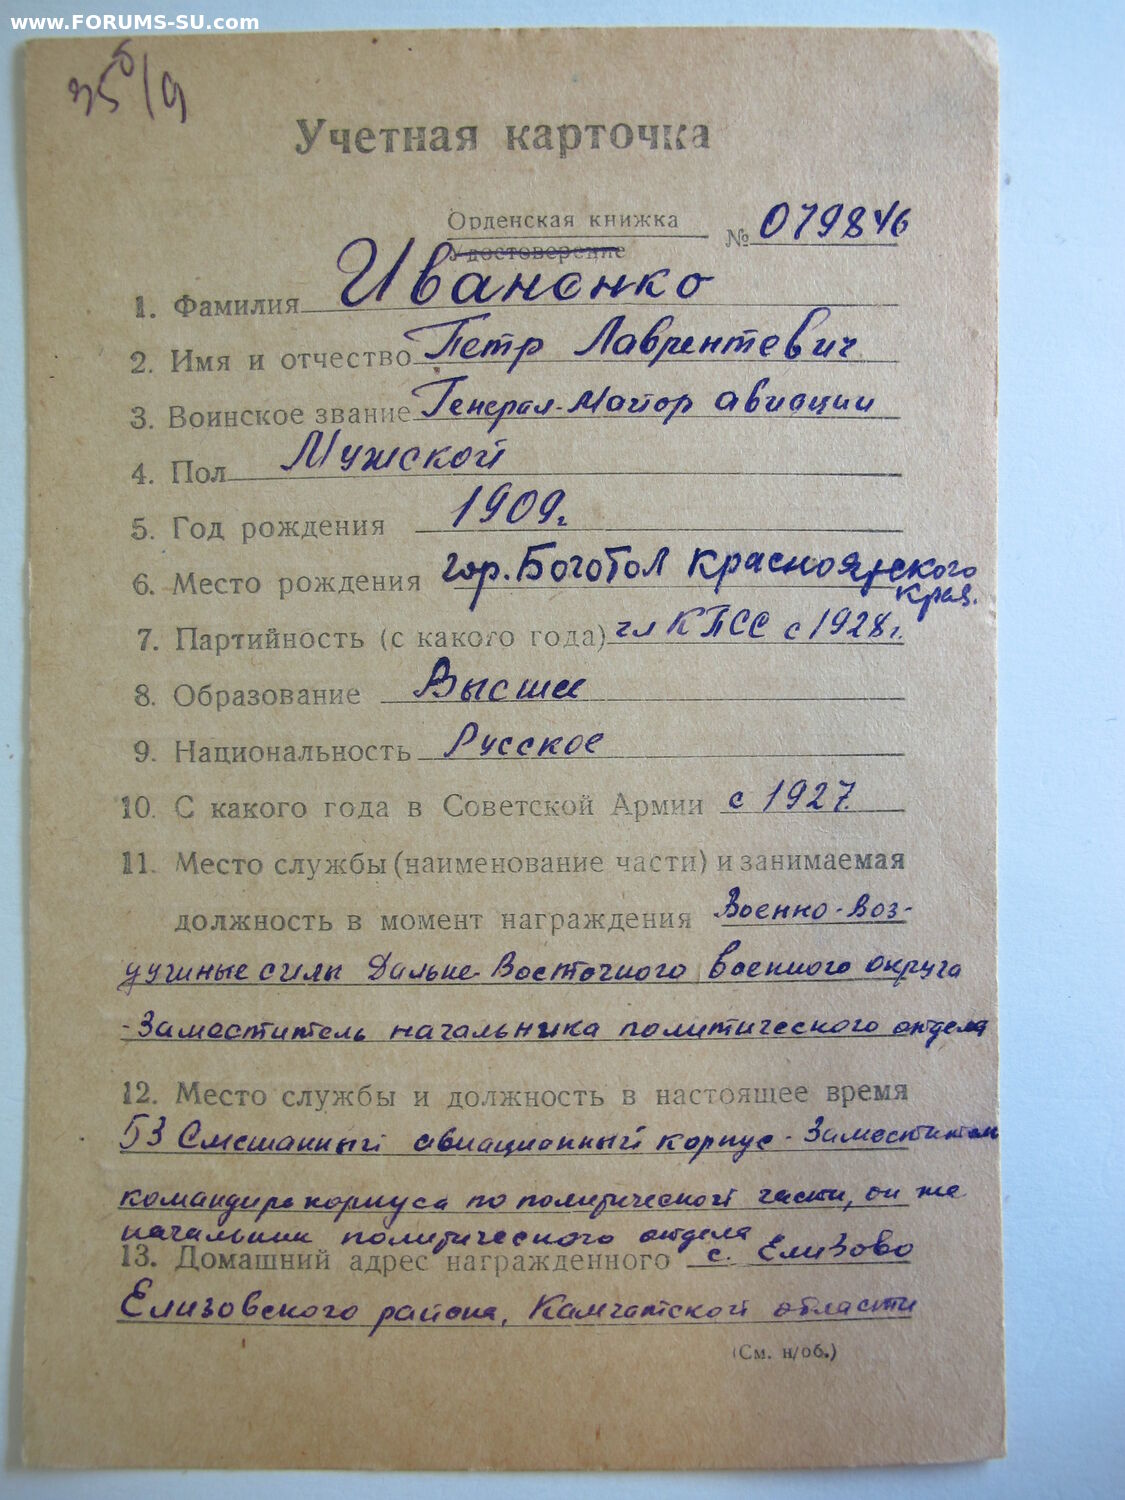 www.FORUMS-SU.com
Учетная карточка
Орденская книжка
Удостоверение
№ 079846
1. Фамилия Иваненко
2. Имя и отчество Петр Лаврентевич
3. Воинское звание Генерал-Майор авиации
4. Пол Мужской
5. Год рождения 1909г.
6. Место рождения гор. Боготол Красноярского
края.
7. Партийность (с какого года) чл КПСС с 1928г.
8. Образование Высшее
9. Национальность Русское
10. С какого года в Советской Армии с 1927
11. Место службы (наименование части) и занимаемая
должность в момент награждения Военно-Воз-
душные силы Дальне-Восточного военного округа
-Заместитель начальника политического отдела
12. Место службы и должность в настоящее время
53 Смешанный авиационный корпус-Заместитель
командира корпуса по политической части, он же
начальник политического отдела
13. Домашний адрес награжденного с. Елизово
Елизовского района, Камчатской области
(См. н/об.)